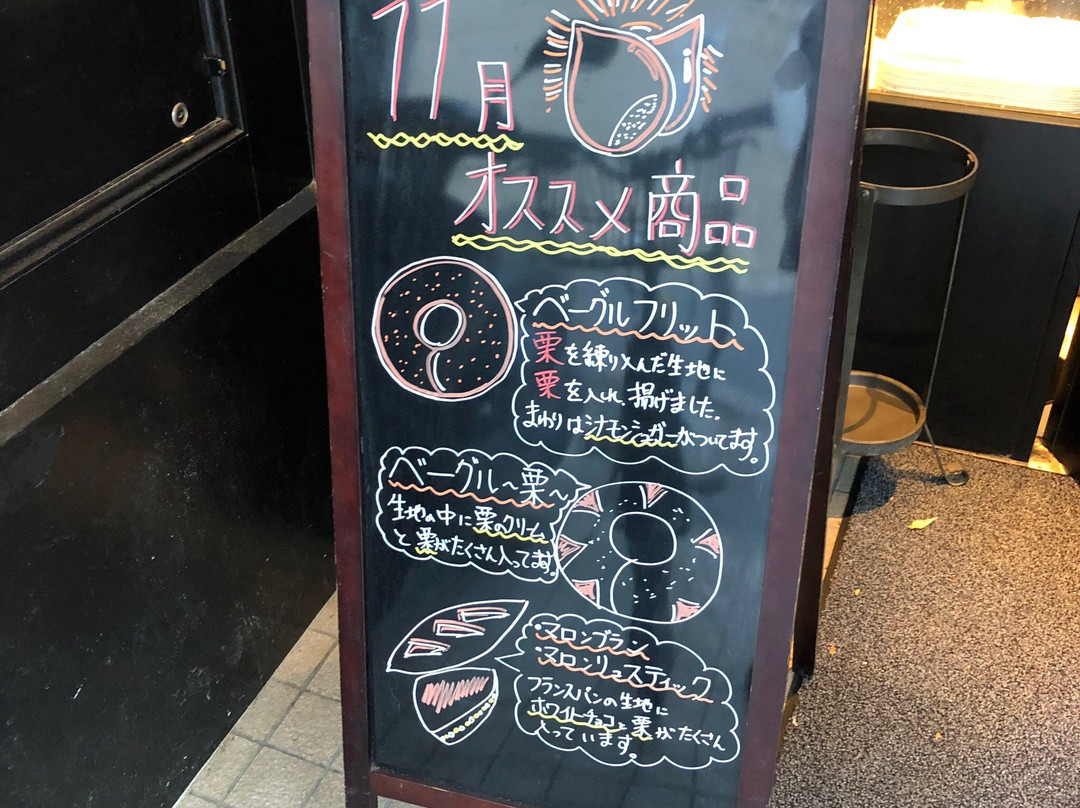 11月
オススメ商品
ベーグルフリット
栗を練り入んだ生地に
栗を入れ、揚げました。
まわりはシナモンシュガーがついてます。
ベーグル～栗～
生地の中に栗のクリーム
と栗がたくさん入ってます。
・マロンブラン
・マロンリュスティック
フランスパンの生地に
ホワイトチョコと栗がたくさん
入っています。